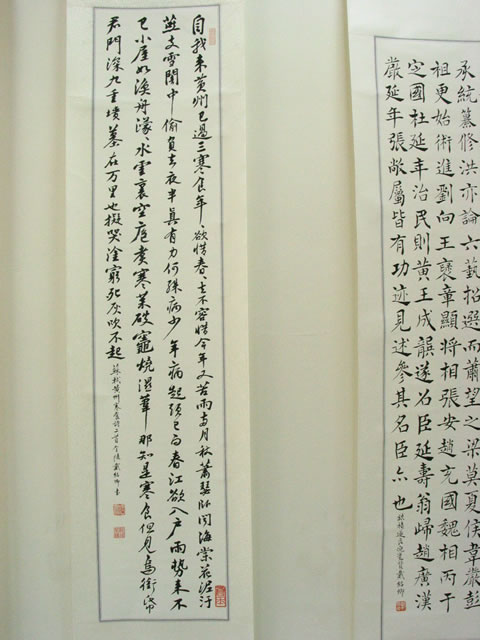 承統纂修洪亦論六藝招選而蕭望之梁莫夏侯韋嚴彭
祖更始術進劉向王褎章顯將相張安趙充國魏相丙于
定國杜延年治民則黃王成龔遂召臣延壽翁歸趙廣漢
嚴延年張敞屬皆有功迹見述參其名臣亦也
自我來黃州已過三寒食年、欲惜春、去不容惜今年又苦雨兩月秋蕭瑟卧聞海棠花泥汙
燕支雪闇中偷負去夜半真有力何殊病少年病起頭已白春江欲入戶雨勢來不
已小屋如漁舟濛、水雲裏空庖煮寒菜破竈燒濕葦那知是寒食但見烏銜帋
君門深九重墳墓在万里也擬哭塗窮死灰吹不起
蘇軾黃州寒食詩二首